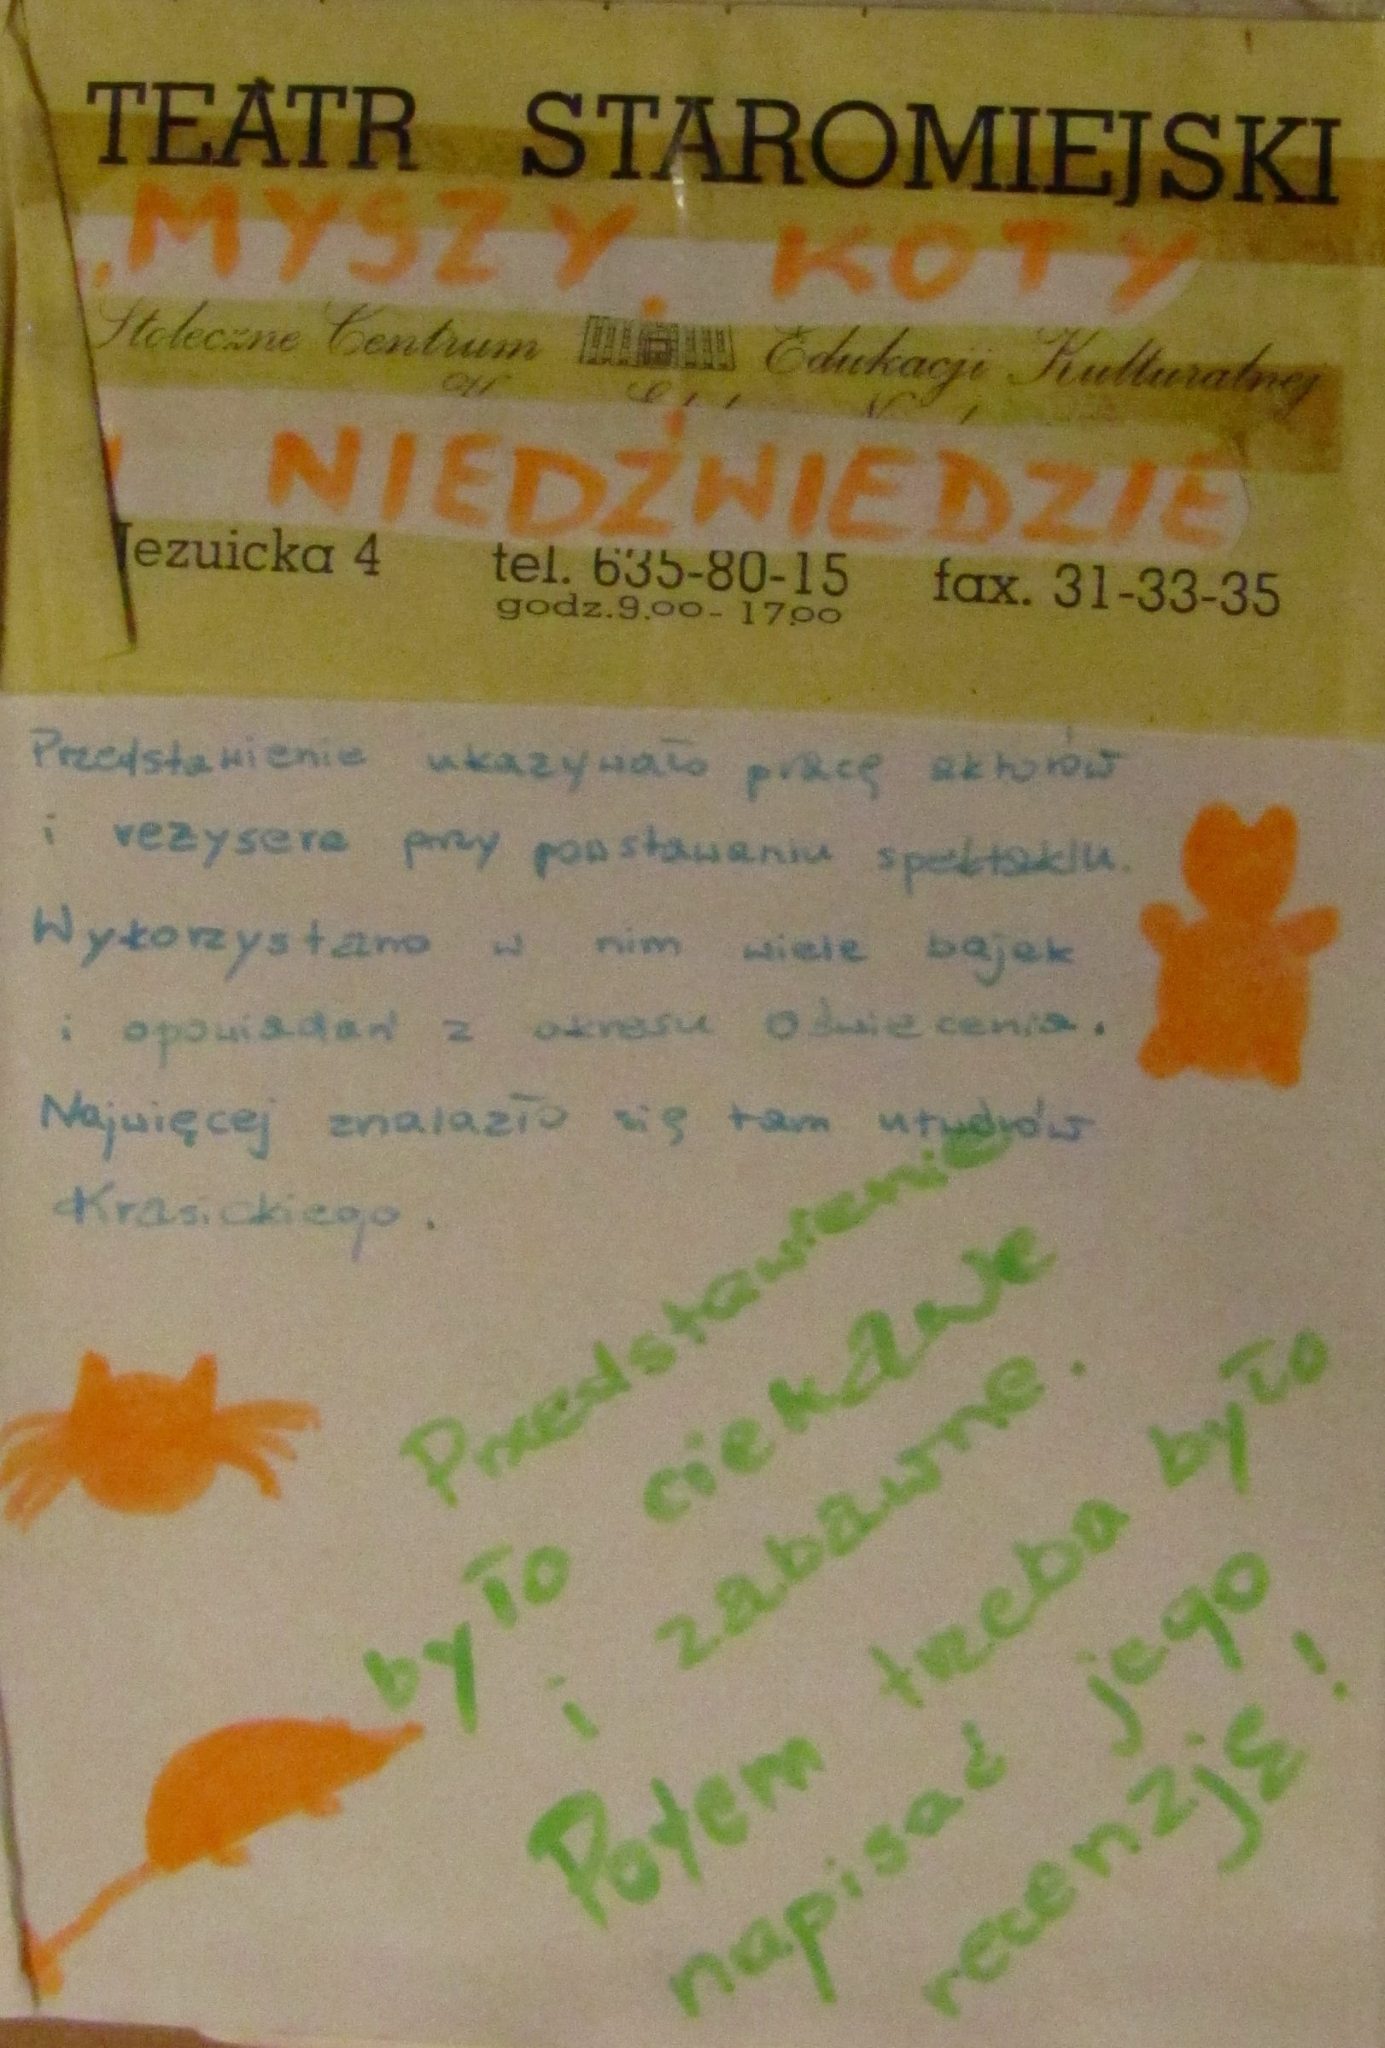 TEATR STAROMIEJSKI
„MYSZY, KOTY
Stołeczne Centrum Edukacji Kulturalnej
NIEDŹWIEDZIE
Jezuicka 4 tel. 635-80-15 fax. 31-33-35
godz. 9.00 - 17.00
Przedstawienie ukazywało pracę aktorów
i reżysera przy powstawaniu spektaklu.
Wykorzystano w nim wiele bajek
i opowiadań z okresu Oświecenia.
Najwięcej znalazło się tam utworów
Krasickiego.
Przedstawienie
było ciekawe
i zabawne.
Potem trzeba było
napisać jego
recenzję!